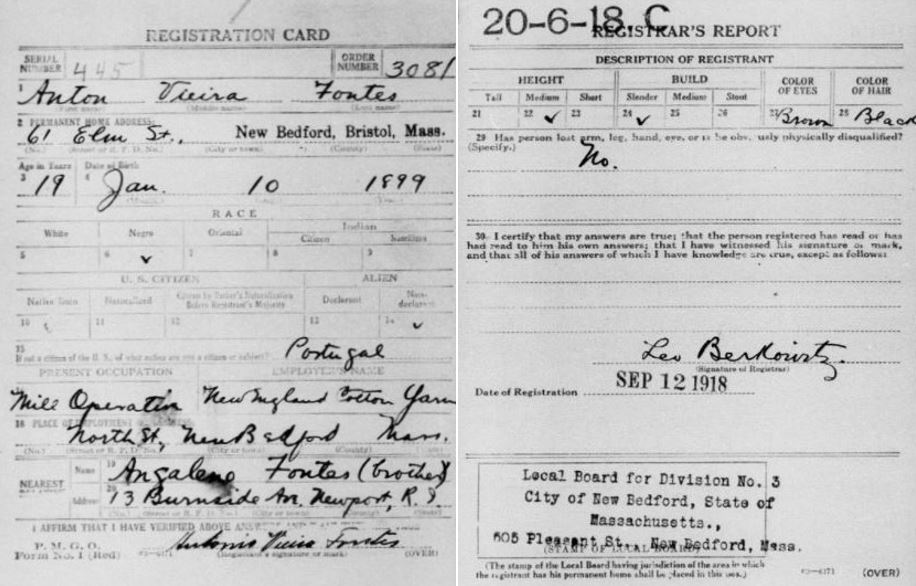 REGISTRATION CARD
SERIAL NUMBER 445
ORDER NUMBER 3081
1 Anton Vieira Fontes
(First name) (Middle name) (Last name)
2 PERMANENT HOME ADDRESS:
61 Elm St., New Bedford, Bristol, Mass.
(No.) (Street or R. F. D. No.) (City or town) (County) (State)
Age in Years Date of Birth
3 19 4 Jan. 10 1899
RACE
White Negro Oriental Indian
Citizen
5 6 ✓ 7 8 9
U. S. CITIZEN ALIEN
Native Born Naturalized Citizen by Father's Naturalization Before Registrant's Majority Declarant Non-declarant
10 11 12 13 14 ✓
15
If not a citizen of the U. S., of what nation are you a citizen or subject? Portugal
PRESENT OCCUPATION EMPLOYER'S NAME
Mill Operative New England Cotton Yarn
18 PLACE OF EMPLOYMENT OR BUSINESS:
North St., New Bedford Mass.
(No.) (Street or R. F. D. No.) (City or town) (County) (State)
NEAREST Name 19 Angaleno Fontes (brother)
Address 20 13 Burnside Av. Newport, R. I.
(No.) (Street or R. F. D. No.) (City or town) (County) (State)
I AFFIRM THAT I HAVE VERIFIED ABOVE ANSWERS AND
P. M. G. O.
Form No. 1 (Red) Antonio Vieira Fontes
(OVER)
20-6-18. C
REGISTRAR'S REPORT
DESCRIPTION OF REGISTRANT
HEIGHT BUILD COLOR OF EYES COLOR OF HAIR
Tall Medium Short Slender Medium Stout
21 22 ✓ 23 24 ✓ 25 26 27 Brown 28 Black
29 Has person lost arm, leg, hand, eye, or is he obviously physically disqualified?
(Specify.) No.
30 I certify that my answers are true; that the person registered has read or has
had read to him his own answers; that I have witnessed his signature or mark,
and that all of his answers of which I have knowledge are true, except as follows:
Leo Berkowitz.
(Signature of Registrar)
Date of Registration SEP 12 1918
Local Board for Division No. 3
City of New Bedford, State of
Massachusetts.,
605 Pleasant St., New Bedford, Mass.
(STAMP OF LOCAL BOARD)
(The stamp of the Local Board having jurisdiction of the area in which
the registrant has his permanent home shall be placed in this box.) (OVER)